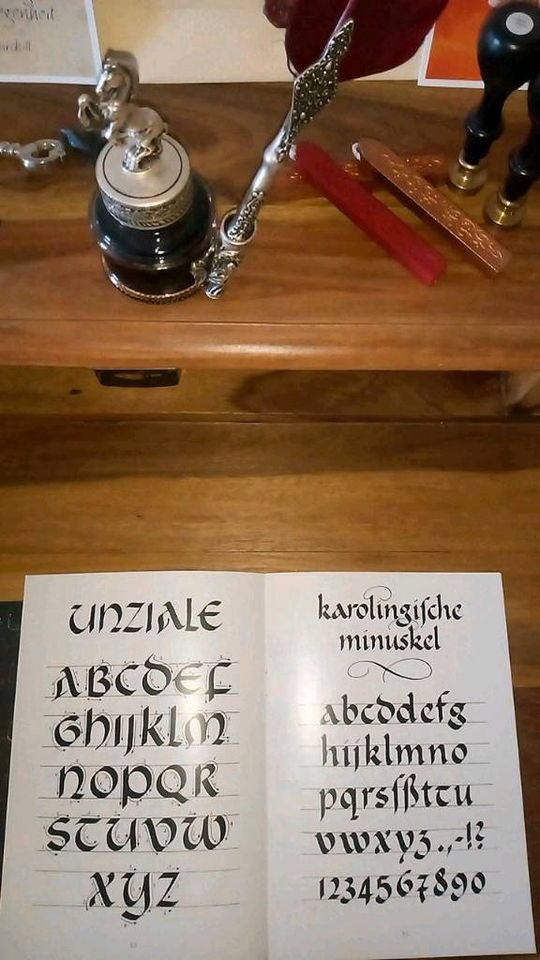 egenheit
UNZIALE
ABCDEF
GHIJKLM
NOPQR
STUVW
XYZ
karolingiſche
minuskel
abcddefg
hijklmno
pqrsſßtτu
vwxyz.,-!?
1234567890